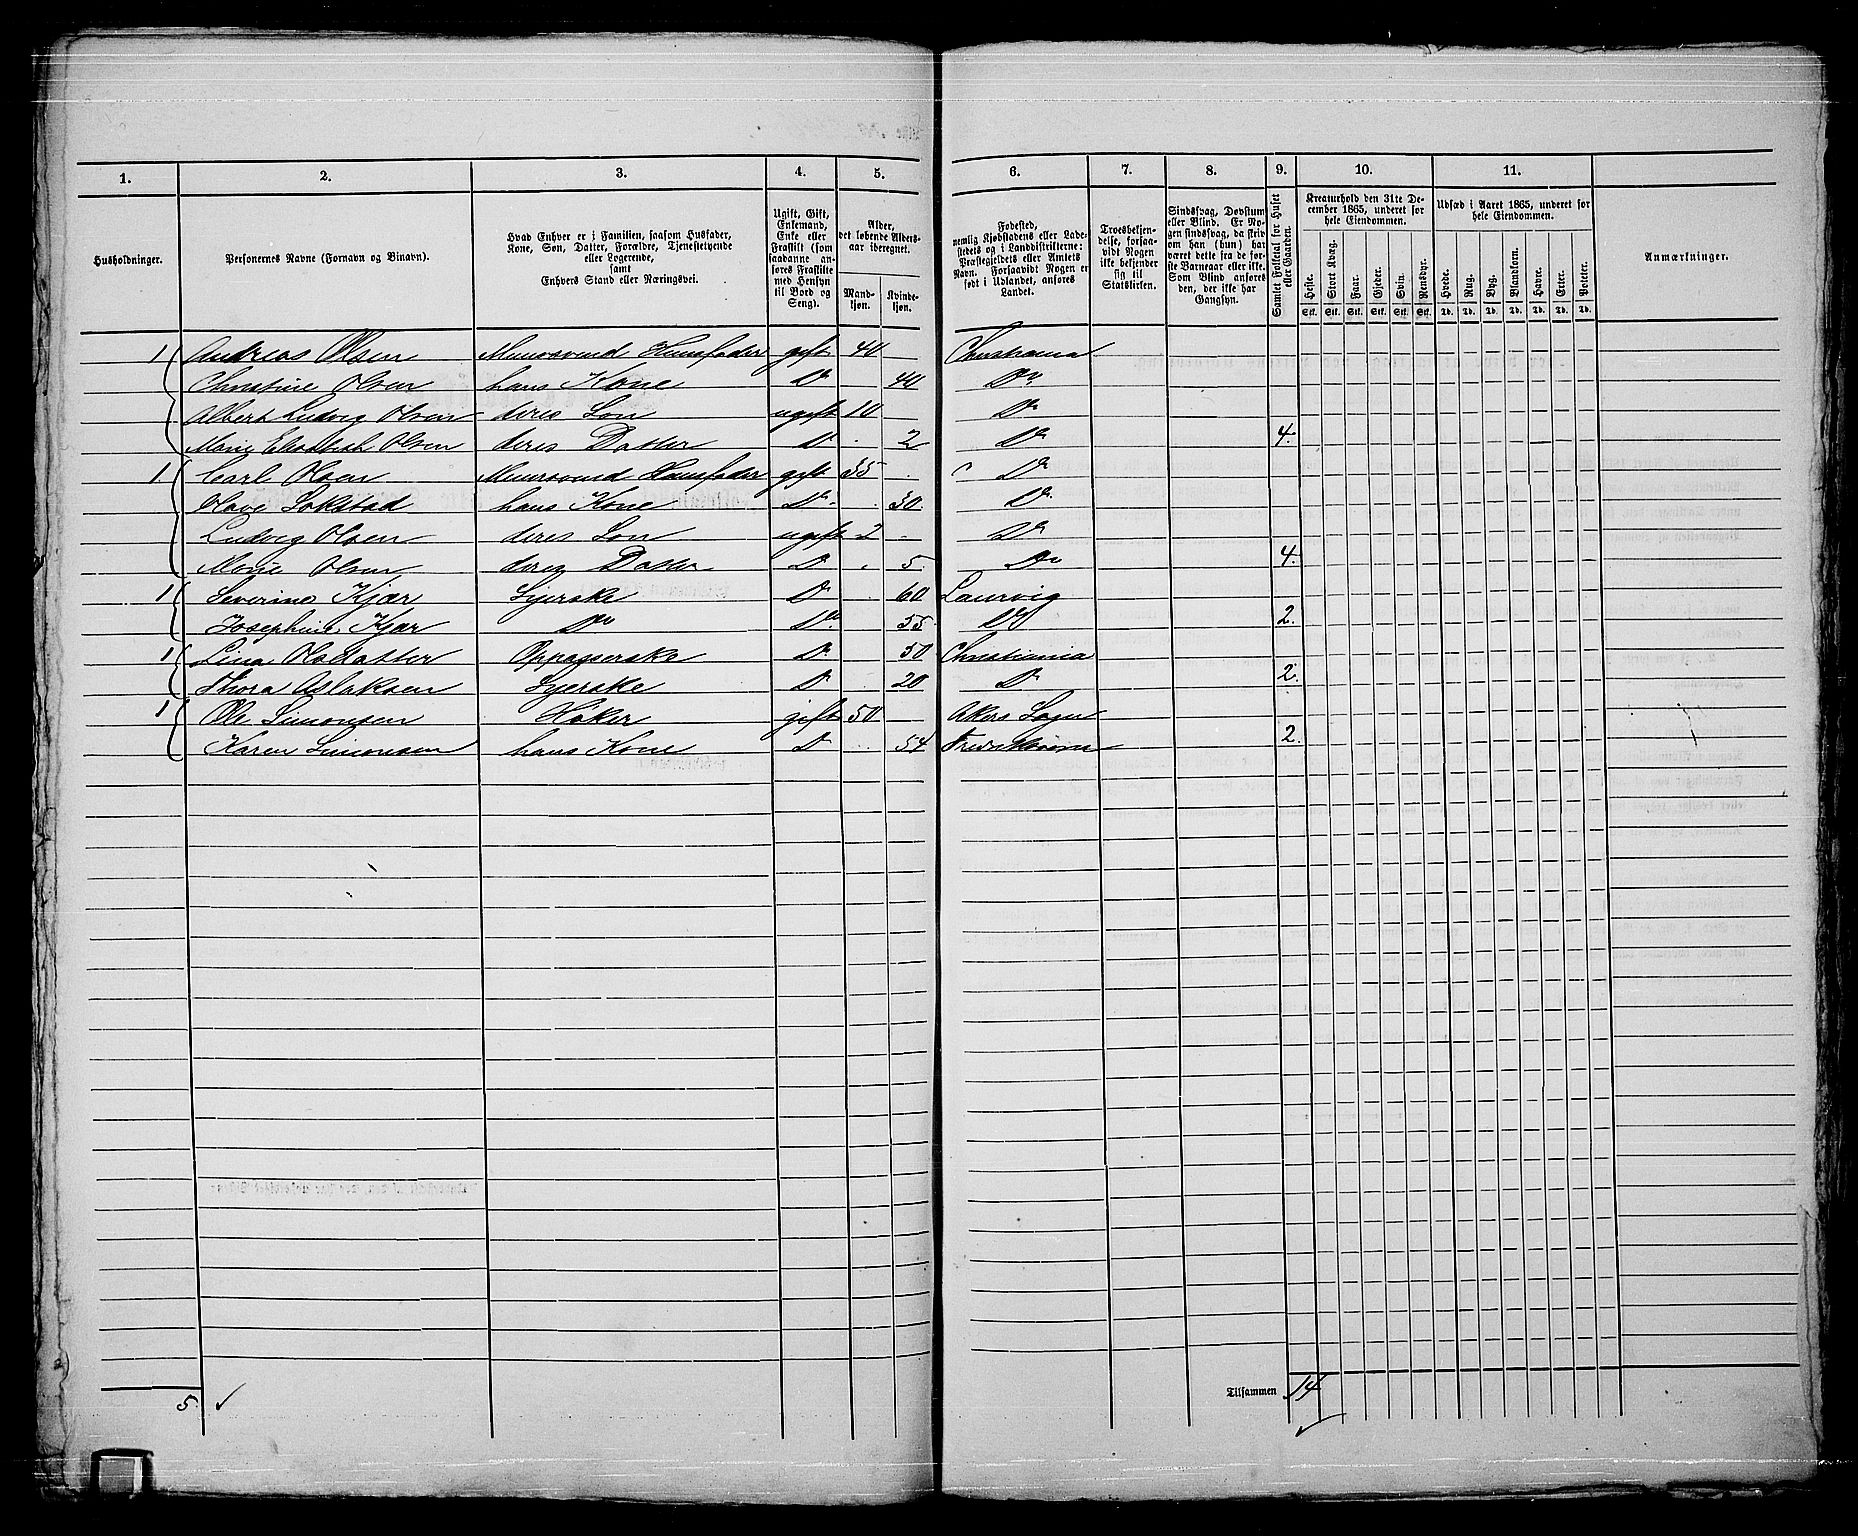 1. 2. 3. 4. 5. 6. 7. 8. 9. 10. 11.
Husholdninger.
Personernes Navne (Fornavn og Binavn).
Hvad Enhver er i Familien, saasom Husfader,
Kone, Søn, Datter, Forældre, Tjenestetyende
eller Logerende,
samt
Enhvers Stand eller Næringsvei.
Ugift, Gift,
Enkemand,
Enke eller
Fraskilt (som
saadanne an-
føres Fraskilte
med Hensyn
til Bord og
Seng).
Alder,
det løbende Alders-
aar iberegnet.
Mand-
kjøn.
Kvinde-
kjøn.
Fødested,
nemlig Kjøbstadens eller Lade-
stedets og i Landdistrikterne:
Præstegjeldets eller Amtets
Navn. Forsaavidt Nogen er
født i Udlandet, anføres
Landet.
Troesbekjen-
delse, forsaa-
vidt Nogen
ikke bekjender
sig til
Statskirken.
Sindssvag, Døvstum
eller Blind. Er No-
gen sindssvag, da skriv
om han (hun) har
været dette fra de for-
ste Barneaar eller ikke.
Som Blind anføres
den, der ikke har
Gangsyn.
Samlet Folketal for Huset
eller Gaarden.
Kreaturhold den 31te De-
cember 1865, underet for
hele Eiendommen.
Heste. Stort Kvæg. Faar. Gjeder. Svin. Rensdyr.
Stk. Stk. Stk. Stk. Stk. Stk.
Udsæd i Aaret 1865, underet for
hele Eiendommen.
Hvede. Rug. Byg. Blandkorn. Havre. Erter. Poteter.
Td. Td. Td. Td. Td. Td. Td.
Anmærkninger.
1 Andreas Olsen Muursvend Huusfader gift 40 Christiania
Christine Olsen hans Kone Do 40 Do
Albert Ludvig Olsen deres Søn ugift 10 Do
Marie Elisabeth Olsen deres Datter Do 2 Do 4.
1 Carl Olsen Muursvend Huusfader gift 35 Do
Olave Sokstad hans Kone Do 30 Do
Ludvig Olsen deres Søn ugift 2 Do
Marie Olsen deres Datter Do 5 Do 4.
1 Severine Kjær Syerske Do 60 Laurvig
Josephine Kjær Do Do 55 Do 2.
1 Lina Olsdatter Oppasserske Do 50 Christiania
Thora Aslaksen Syerske Do 20 Do 2.
1 Ole Simonsen Høker gift 50 Akers Sogn
Karen Simonsen hans Kone Do 54 2.
5.
Tilsammen 14